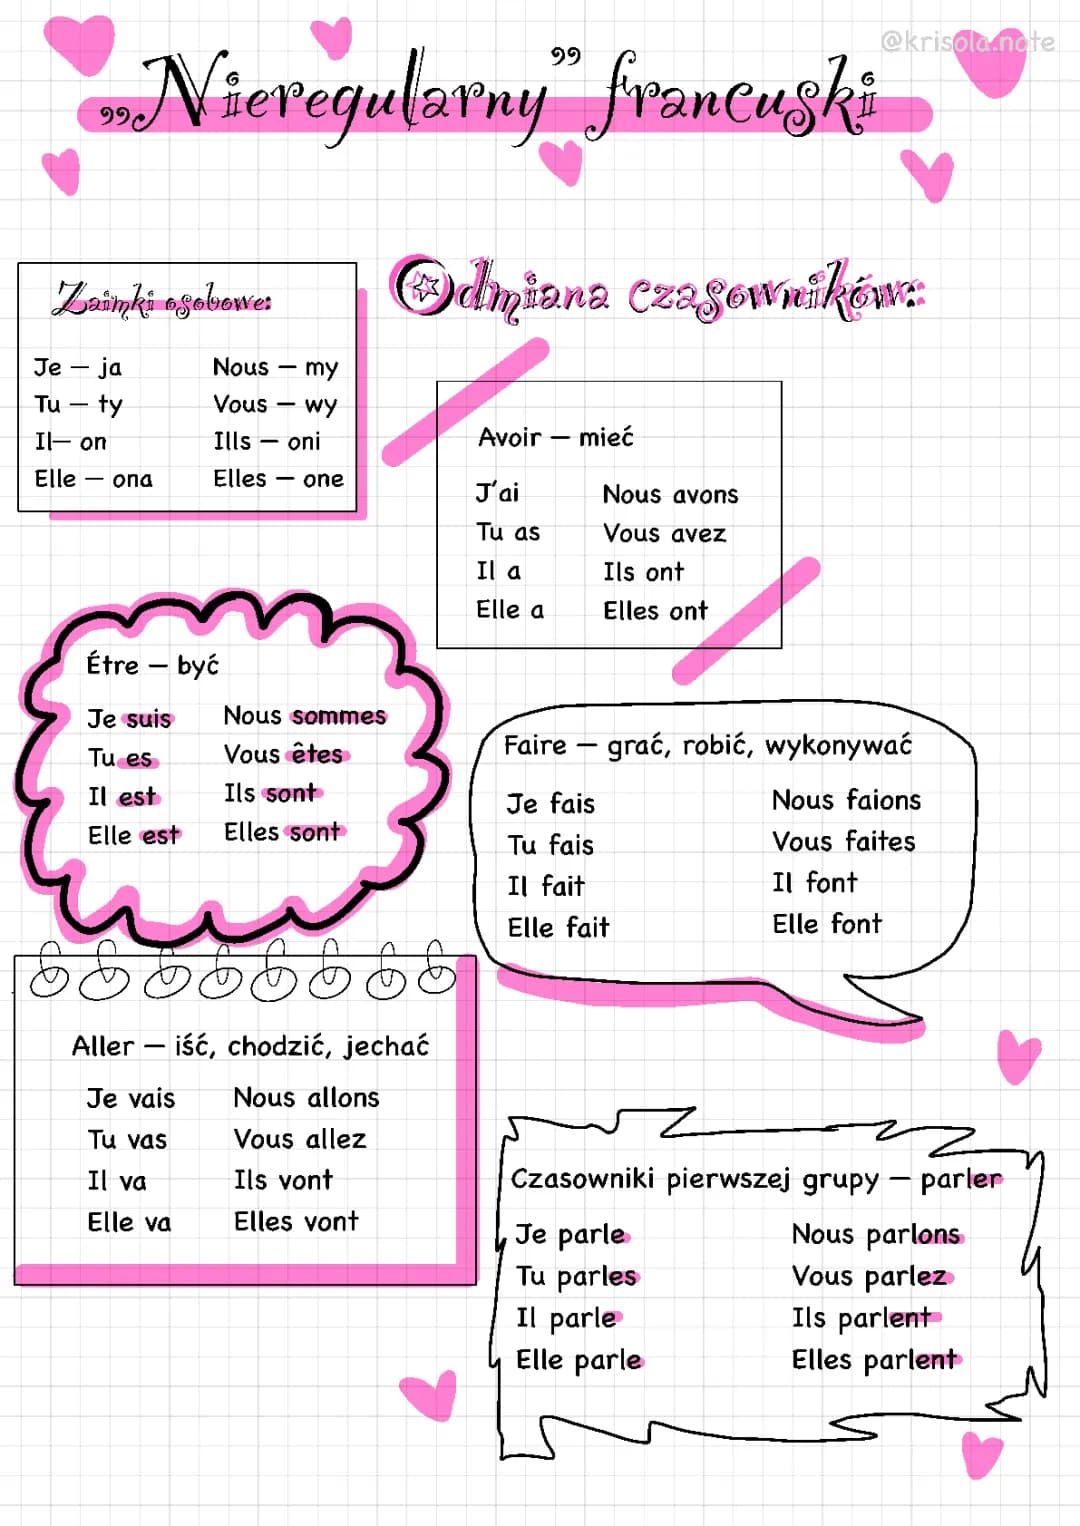 @krisola.note
„Nieregularny” francuski
Zaimki osobowe:
Je – ja
Tu – ty
Il– on
Elle – ona
Nous – my
Vous – wy
Ills – oni
Elles – one
Odmiana czasowników:
Avoir – mieć
J'ai
Tu as
Il a
Elle a
Nous avons
Vous avez
Ils ont
Elles ont
Étre – być
Je suis
Tu es
Il est
Elle est
Nous sommes
Vous êtes
Ils sont
Elles sont
Faire – grać, robić, wykonywać
Je fais
Tu fais
Il fait
Elle fait
Nous faions
Vous faites
Il font
Elle font
Aller – iść, chodzić, jechać
Je vais
Tu vas
Il va
Elle va
Nous allons
Vous allez
Ils vont
Elles vont
Czasowniki pierwszej grupy – parler
Je parle
Tu parles
Il parle
Elle parle
Nous parlons
Vous parlez
Ils parlent
Elles parlent